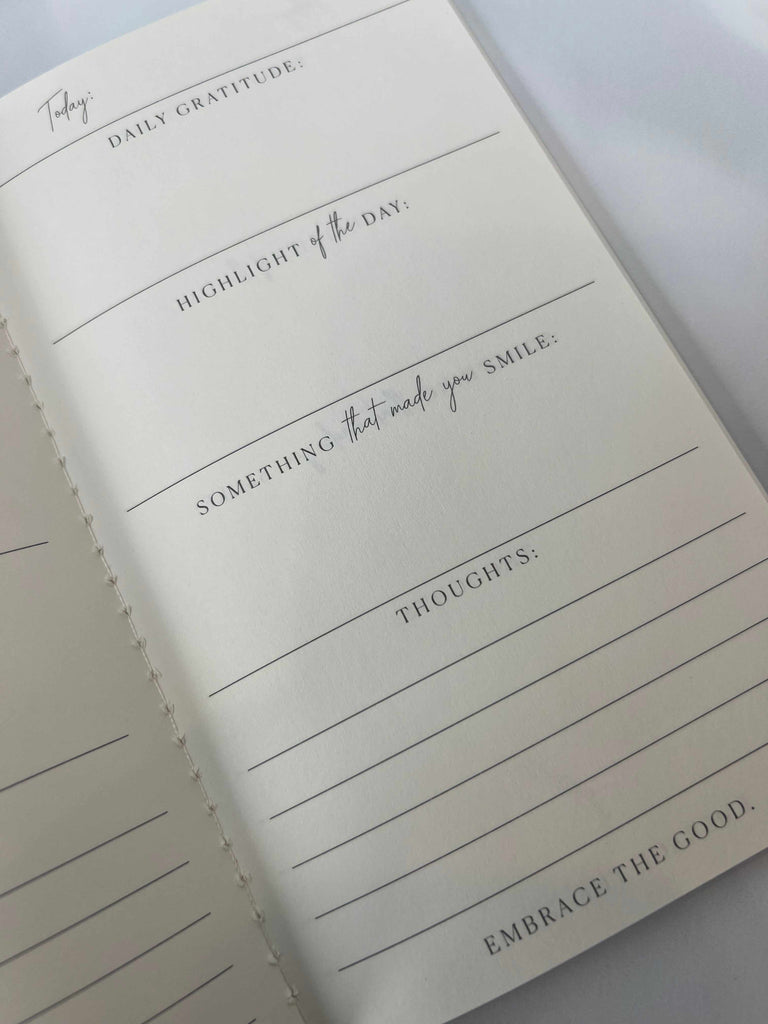 Today:
DAILY GRATITUDE:
HIGHLIGHT of the DAY:
SOMETHING that made you SMILE:
THOUGHTS:
EMBRACE THE GOOD.